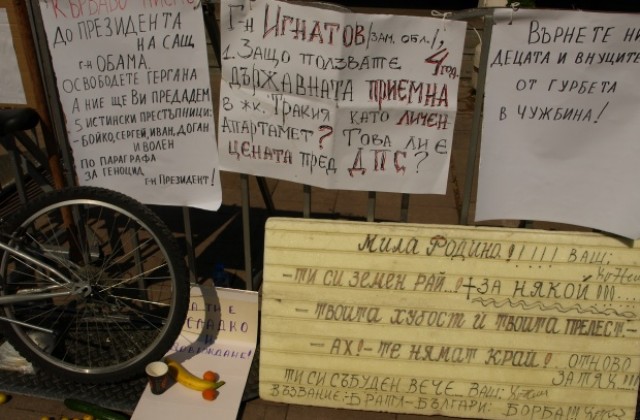 "КЪРВАВО ПИСМО"
ДО ПРЕЗИДЕНТА
НА САЩ
Г-Н ОБАМА.
ОСВОБОДЕТЕ ГЕРГАНА
А НИЕ ЩЕ ВИ ПРЕДАДЕМ
5 ИСТИНСКИ ПРЕСТЪПНИЦИ:
- БОЙКО, СЕРГЕЙ, ИВАН, ДОГАН
И ВОЛЕН
ПО ПАРАГРАФА
ЗА ГЕНОЦИД
Г-Н ПРЕЗИДЕНТ!
Г-Н ИГНАТОВ /ЗАМ. ОБЛ./;
1. ЗАЩО ПОЛЗВАТЕ 4 ГОД.
ДЪРЖАВНАТА ПРИЕМНА
В ЖК. ТРАКИЯ КАТО ЛИЧЕН
АПАРТАМЕТ? ТОВА ЛИ Е
ЦЕНАТА ПРЕД ДПС?
ВЪРНЕТЕ НИ
ДЕЦАТА И ВНУЦИТЕ
ОТ ГУРБЕТА
В ЧУЖБИНА!
МИЛА РОДИНО!!!!!! ВАШ:
- ТИ СИ ЗЕМЕН РАЙ...! + ЗА НЯКОЙ!!!...
- ТВОЙТА ХУБОСТ И ТВОЙТА ПРЕЛЕСТ -
- АХ! - ТЕ НЯМАТ КРАЙ! ... ОТНОВО
ЗА ТЯХ!!!
ТИ СИ СЪБУДЕН ВЕЧЕ... ВАШ:
ВЪЗЗВАНИЕ: БРАТЯ - БЪЛГАРИ: БОРБАТА